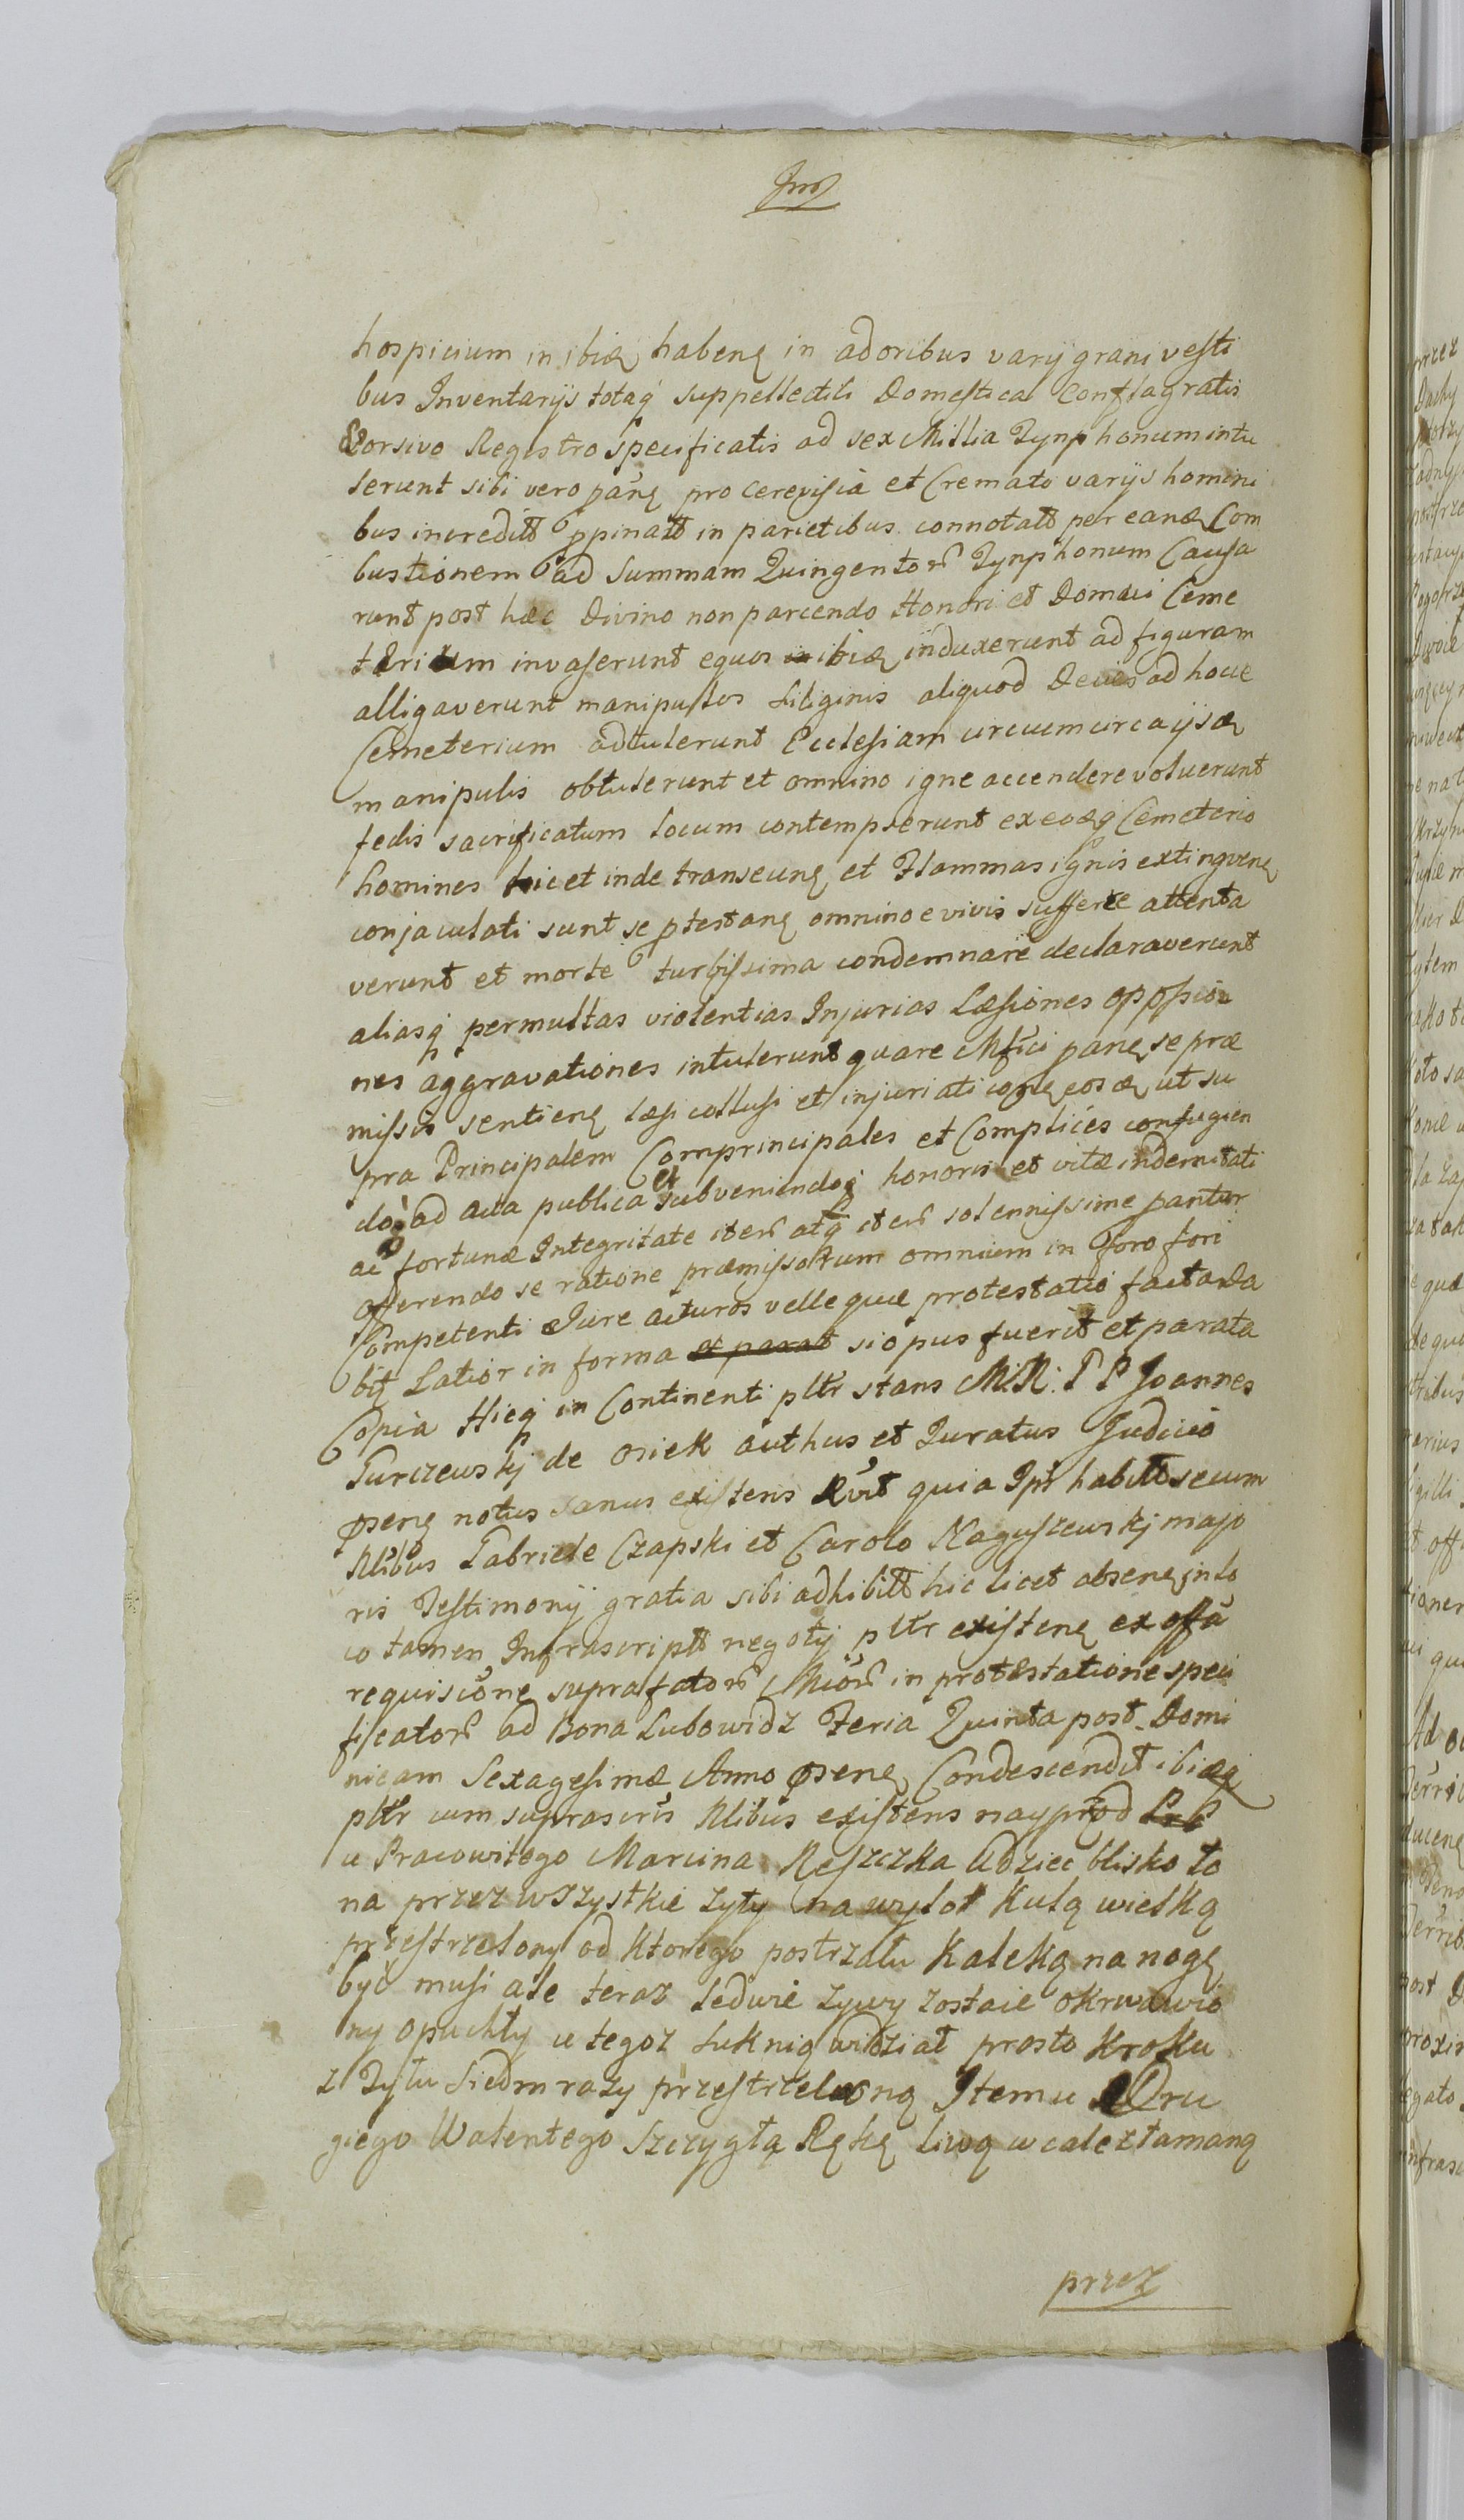 hospicium in ibiq habenę in adoribus varij grani vesti
bus Inventarijs totaq suppellectili Domestica Conflagratis
Seorsivo Registro specificatis ad sex Millia Tynphonum intu
lerunt sibi vero panę pro Cerevisia et Cremato varijs homini
bus increditt ppinatt in parietibus connotatt per eanq Com
bustionem ad Summam Quingentor Tynphonum Causa
runt post hæc Divino non parcendo Honori et Domui Ceme
terium invaserunt equos ibiq induxerunt ad figuram
alligaverunt manipulos siliginis aliquod Decies ad hocce
Cemeterium adtulerunt Ecclesiam circumcirca ijsq
manipulis obtulerunt et omnino igne accendere voluerunt
fedis sacrificatum Locum contempserunt ex eoqq Cemeterio
homines hic et inde transeunę et Flammas ignis extingvenę
conjaculati sunt se ptestanę omnino e vivis sufferre attenta
verunt et morte turbissima condemnare declaraverunt
aliasq permultas violentias Injurias Læsiones oppssio
nes aggravationes intulerunt quare Mfici panę se præ
missis sentienę læsi collusi et injuriati cogę eosq ut su
pra Principalem Comprincipales et Complices confugien
doq ad acta publica et subveniendoq honoris et vitæ indemitati
ac fortunæ Integritate iter atq iter solennissime pantur
offerendo se ratione præmissorum omnium in Foro fori
Competenti Jure acturos velle quæ protestatio facta da
bit Latior in forma et parat si opus fuerit et parata
Copia Hicq in Continenti pltr stans M.R. P P Joannes
Turczewskj de Osiek authus et Juratus Judicio
psenę notus sanus existens Rvit quia Ipse habitt secum
Nlibus Gabriele Czapski et Carolo Naguszewskj majo
ris Testimonij gratia sibi adhibitt hic licet absenę in lo
co tamen Infrascriptt negotij pltr existenę ex offa
requisione suprafator Mcor in protestatione speci
ficator ad Bona Lubowidz Feria Quinta post Domi
nicam Sexagesimæ Anno psenę Condescendit ibiqq
pltr cum suprascris Nlibus existens nayprzod
u Pracowitego Marcina Reszczka Udziec blisko Ło
na przez wszystkie żyły na wylot Kulą wielką
przestrzelony od Ktorego postrzału Kaleką na nogę
być musi ale teraz ledwie zywy zostaie okrwawio
ny opuchły u tegoz suknią widział prosto Kroku
z Tyłu siedm razy przestrzeloną Item u Dru
giego Walentego Szczygła Rękę liwą wcale złamaną
przez